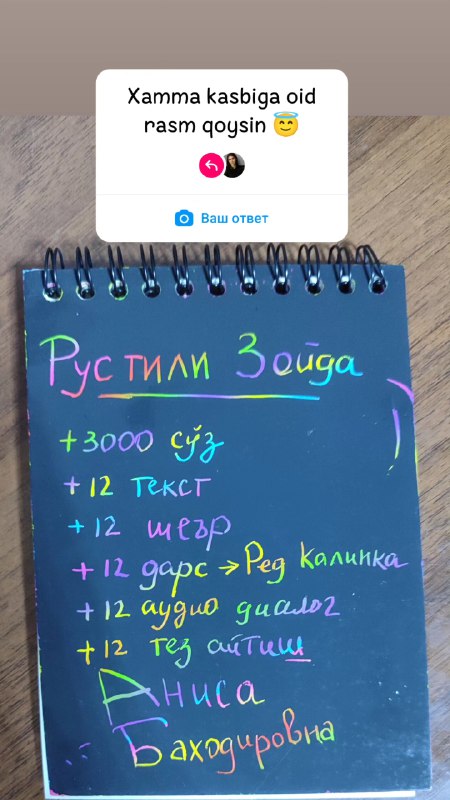 Xamma kasbiga oid
rasm qoysin 😇
Ваш ответ
Рустили Зойда
+3000 сўз
+12 текст
+12 шеър
+12 дарс → Ред Калинка
+12 аудио диалог
+12 тез айтиш
Аниса
Баходировна